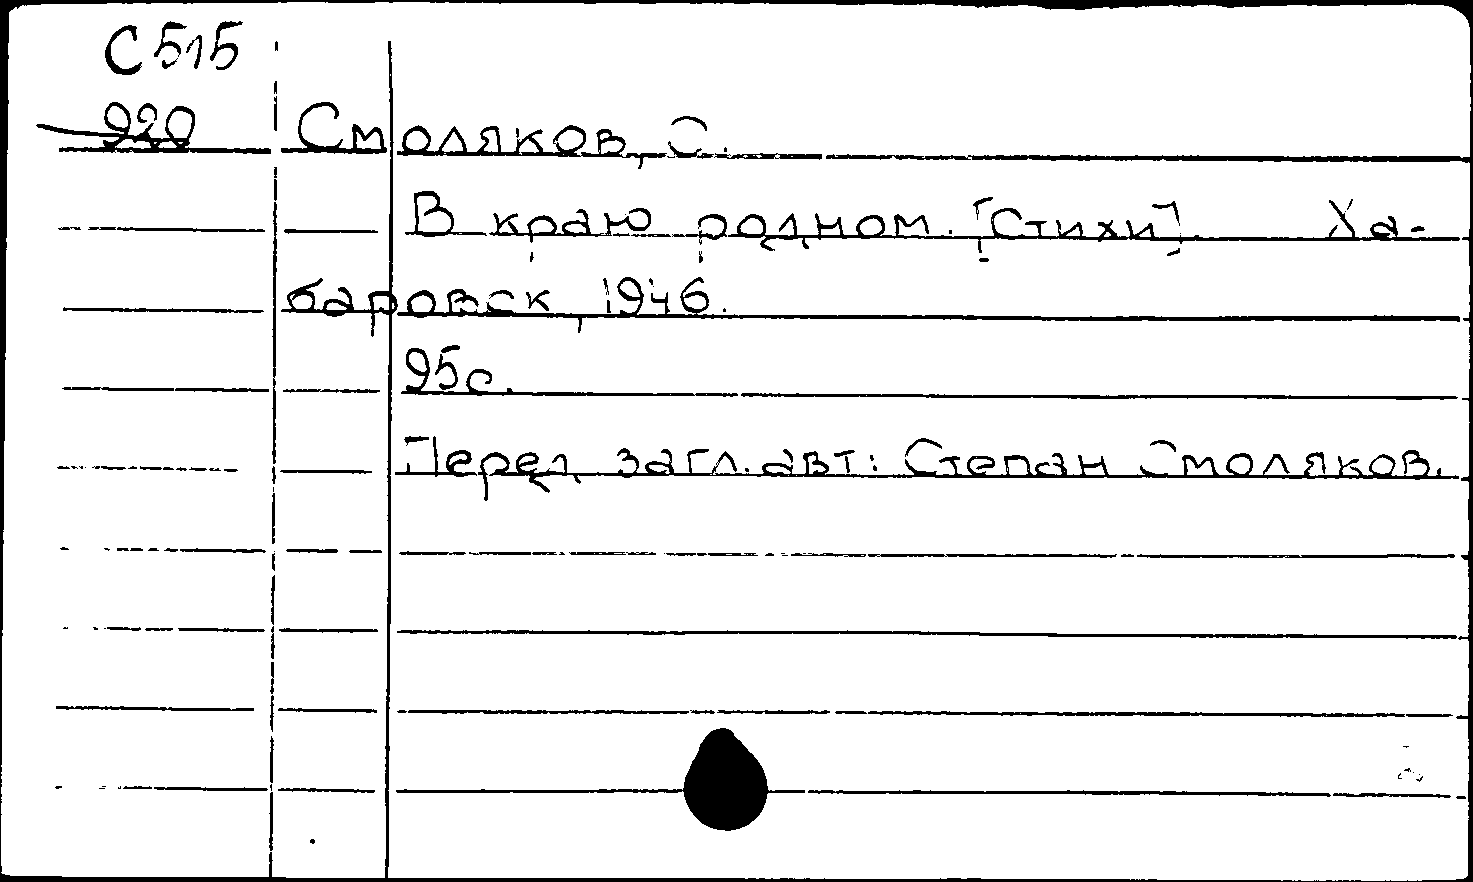 С515
920 Смоляков, С.
В краю родном. [Стихи]. Ха-
баровск, 1946.
95с.
Перед загл. авт: Степан Смоляков.